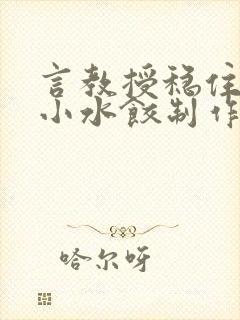 言教授稳住
小水饺制作
哈尔呀